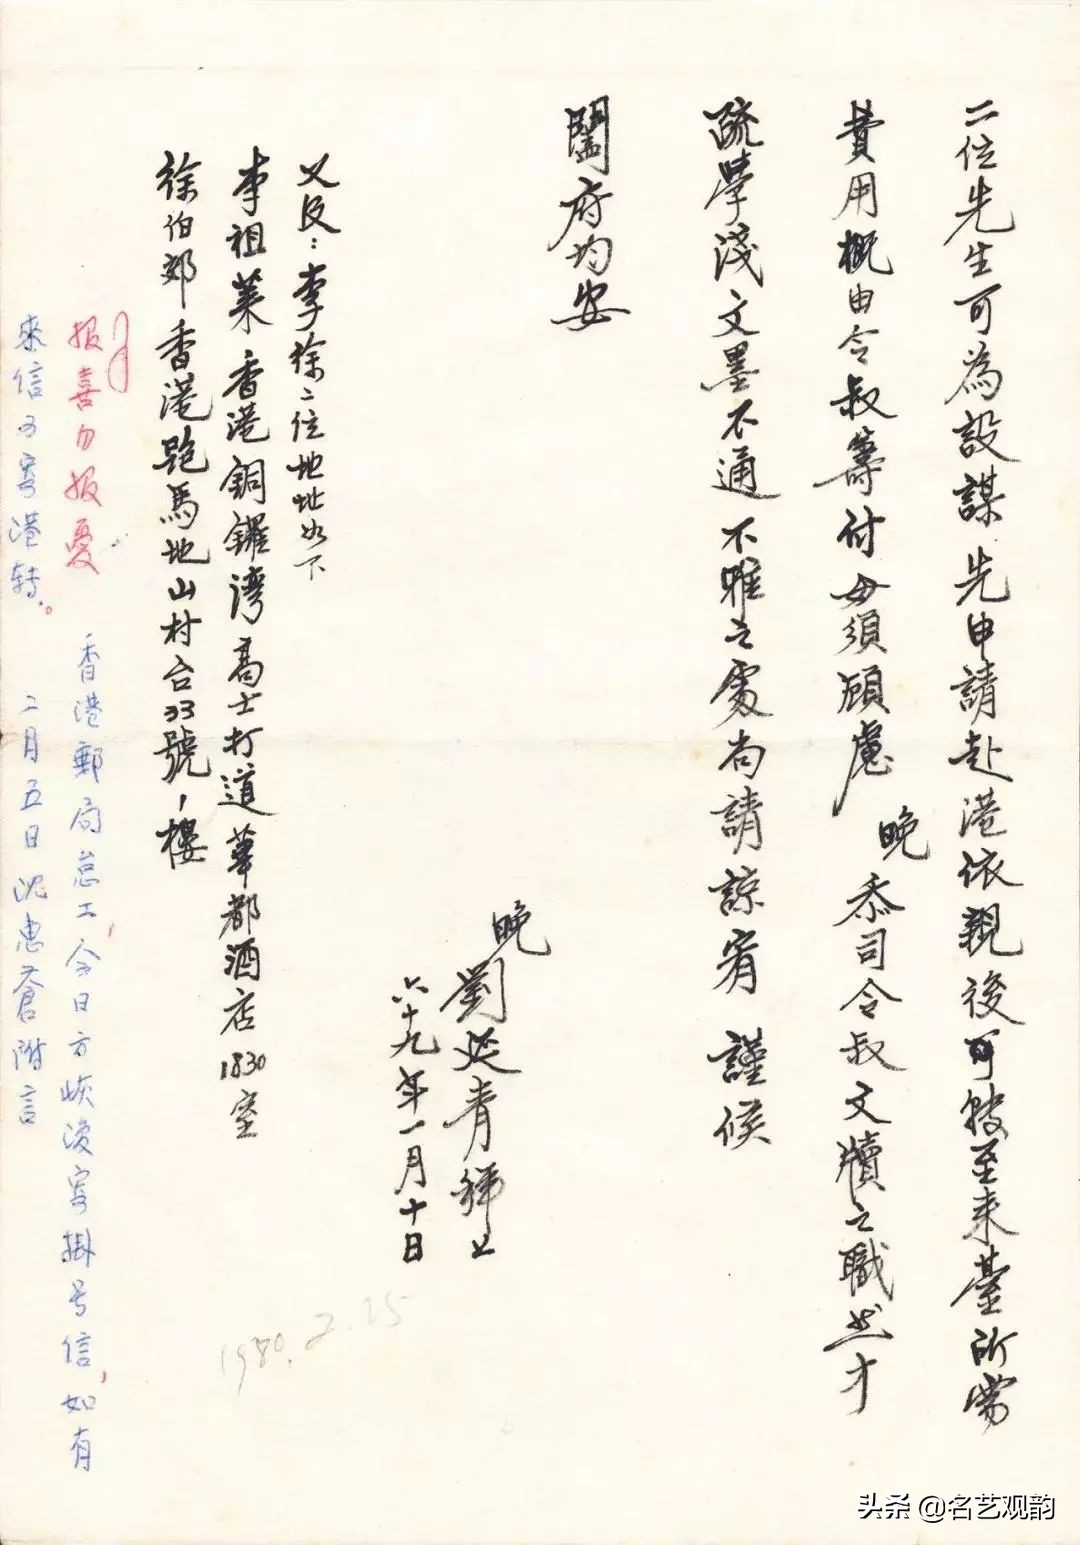 二位先生可為設謀先申請赴港依親後可轉至來臺所需
費用概由令叔籌付毋須顧慮 晚忝司令叔文牘之職然才
疏學淺文墨不通不雅之處尚請諒宥 謹候
闔府均安
晚劉延青拜上
六十九年一月十日
又及：李徐二位地址如下
李祖萊香港銅鑼灣高士打道華都酒店1830室
徐伯郊香港跑馬地山村台33號1樓
报喜勿报憂
香港郵局怠工，今日方恢復寄掛号信，如有
來信可寄港转。
二月五日 沈惠蒼附言
1980.2.25
头条 @名艺观韵